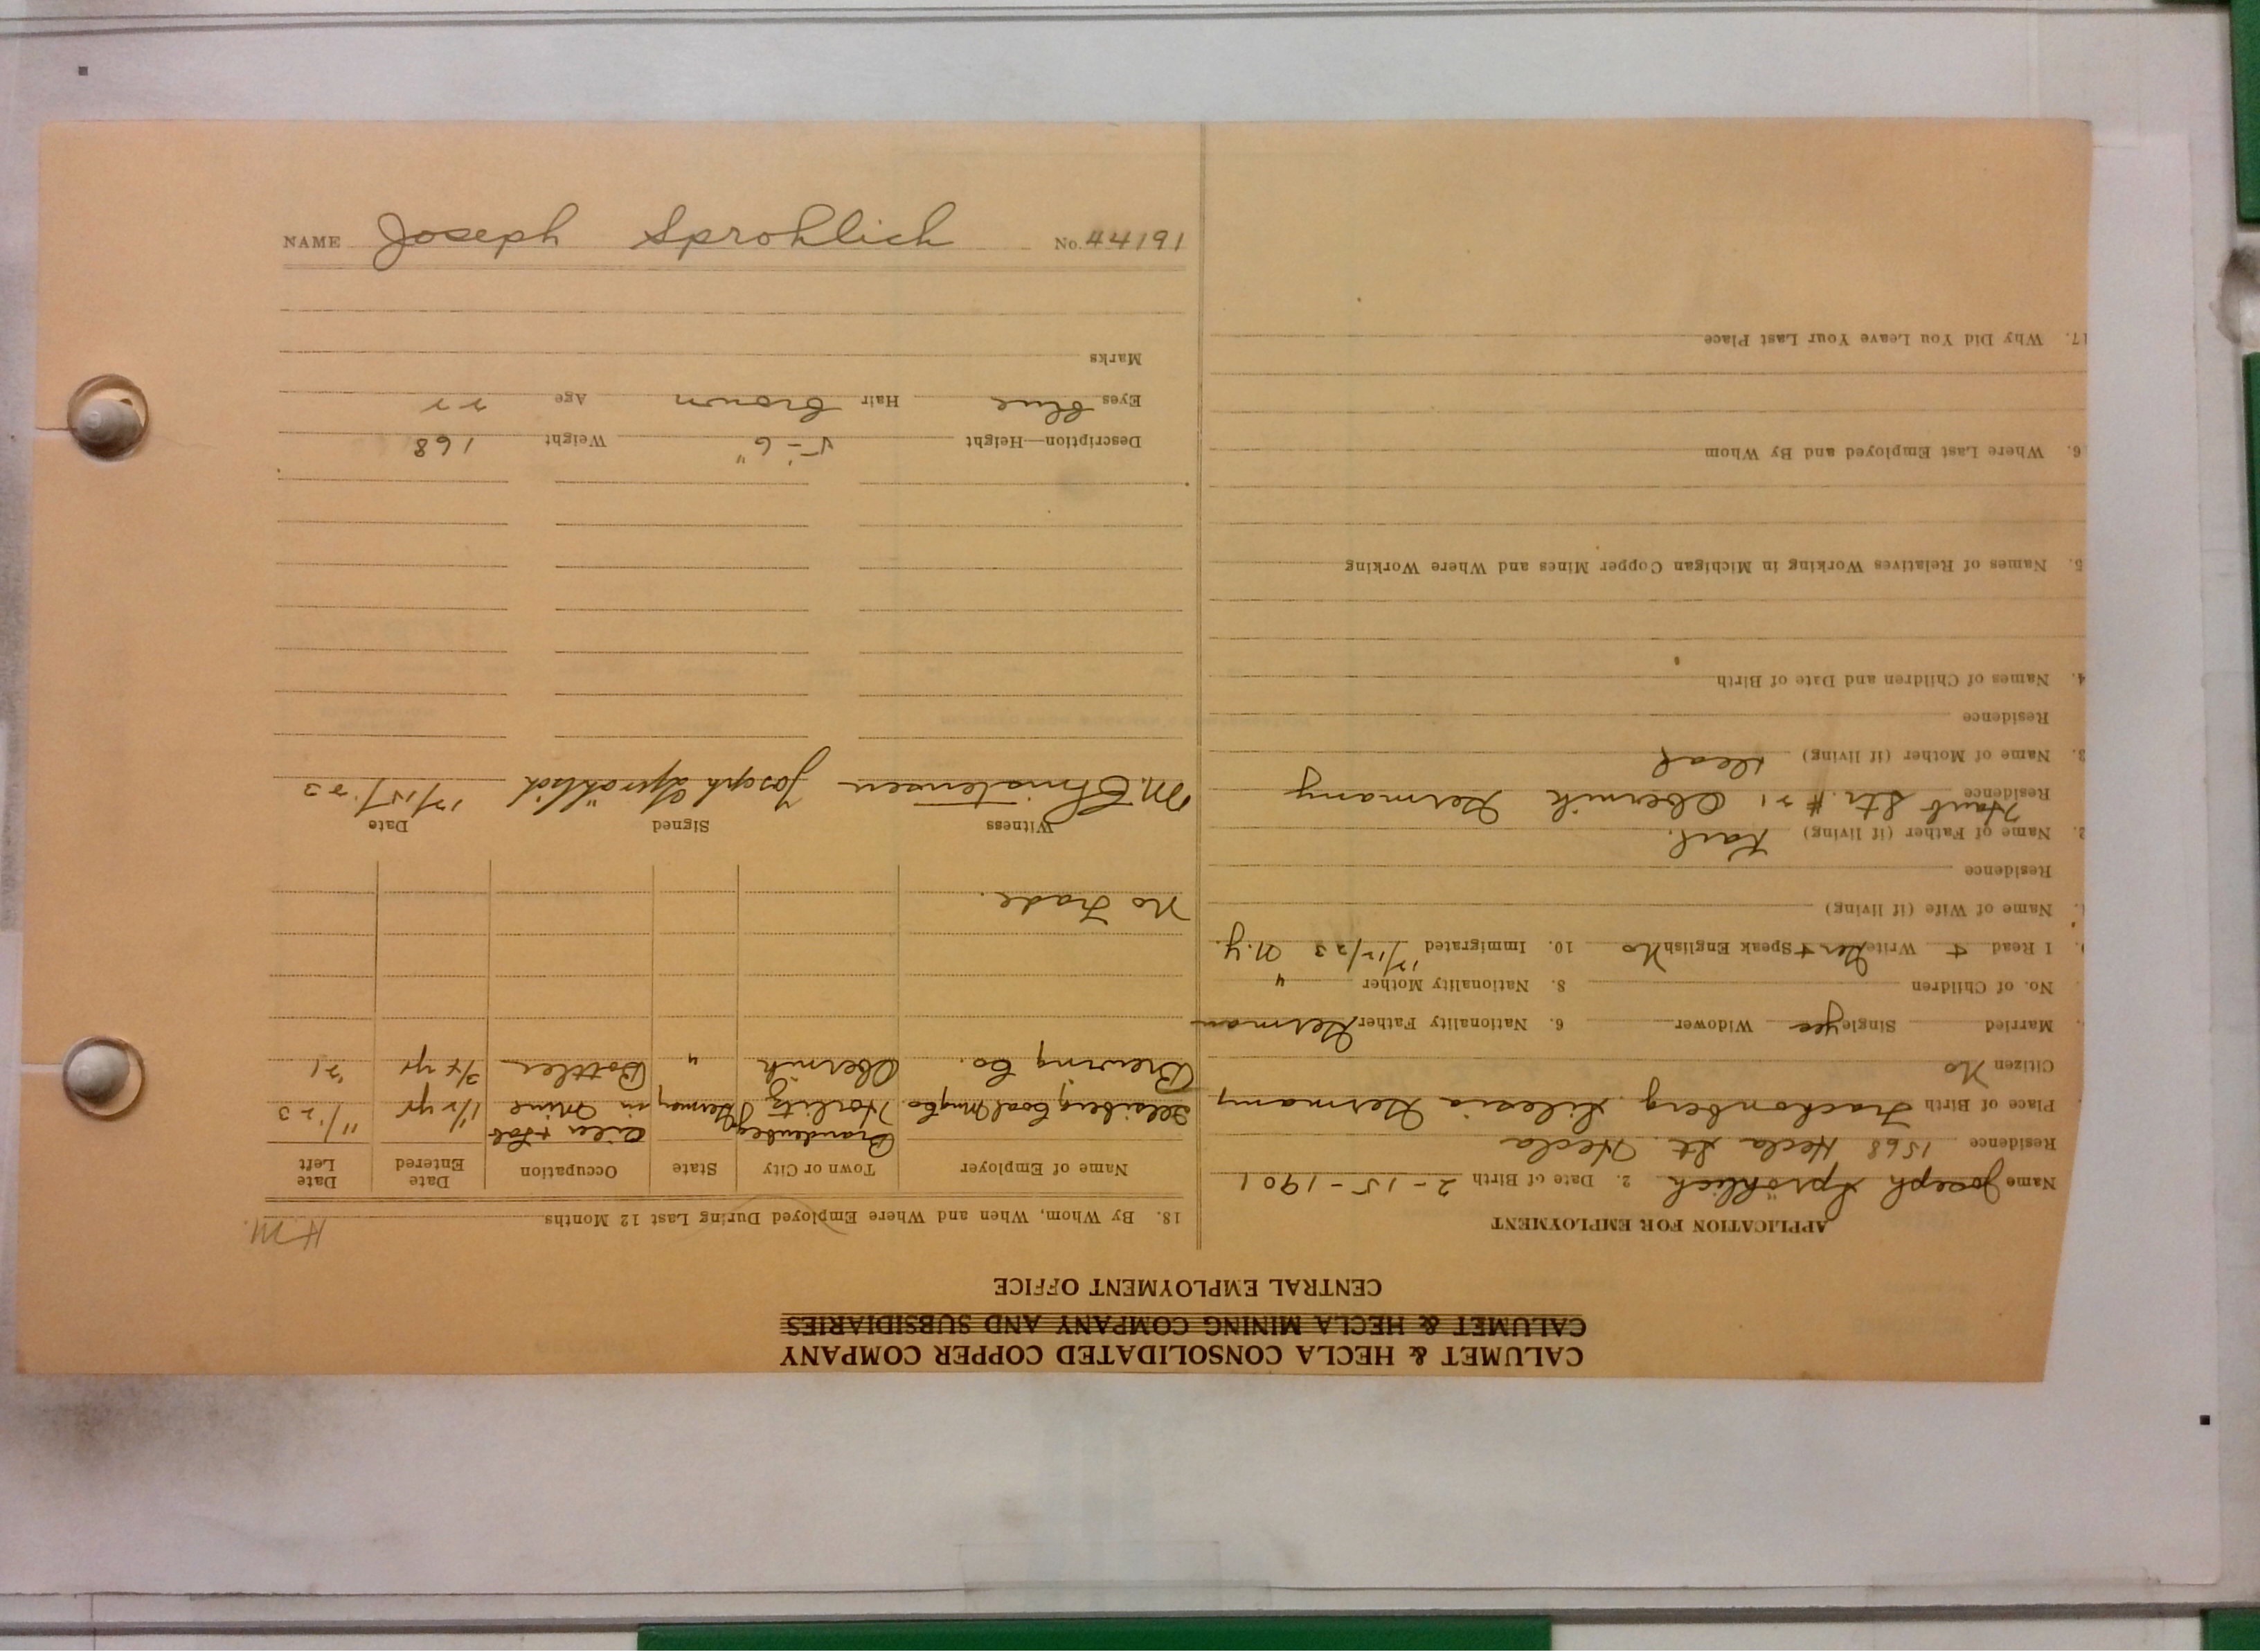 NAME Joseph Sprohlich No. 44191
CALUMET & HECLA CONSOLIDATED COPPER COMPANY
CALUMET & HECLA MINING COMPANY AND SUBSIDIARIES
CENTRAL EMPLOYMENT OFFICE
APPLICATION FOR EMPLOYMENT
Name Joseph Spröhlich 2. Date of Birth 2-15-1901
Residence 1568 Hecla St. Hecla
Place of Birth Trachonberg Silesia Germany
Citizen No
Married Single yes Widower 6. Nationality Father German
No. of Children 8. Nationality Mother "
I Read + Write Ger + Speak English No 10. Immigrated 12/12/23 N.Y.
Name of Wife (if living)
Residence
2. Name of Father (if living) Karl.
Residence Haub Str. #21 Obernik Germany
3. Name of Mother (if living) dead
Residence
4. Names of Children and Date of Birth
5. Names of Relatives Working in Michigan Copper Mines and Where Working
6. Where Last Employed and By Whom
17. Why Did You Leave Your Last Place
H.M.
18. By Whom, When and Where Employed During Last 12 Months
Name of Employer Town or City State Occupation Date Entered Date Left
Brandenberg Oiler + Lab
Coal Mng Co Horlitz Germany in Mine 1 1/2 yr 11/1/23
Brewing Co. Obernik " Bottler 3/4 yr '21
No Trade.
Witness Signed Date
M. Christensen Joseph Spröhlich 12/15/23
Description—Height 5'-6" Weight 168
Eyes blue Hair brown Age 22
Marks